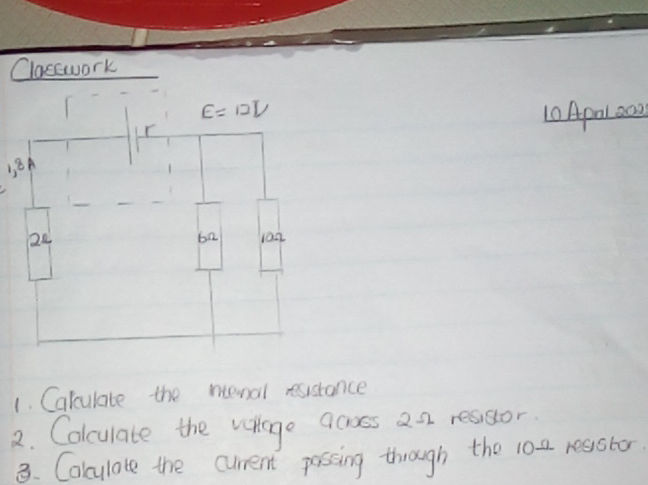 Classwork
E = 12V
10 April
r
1,8A
2Ω
6Ω
10Ω
1. Calculate the internal resistance
2. Calculate the voltage across 2Ω resistor.
3. Calculate the current passing through the 10Ω resistor.